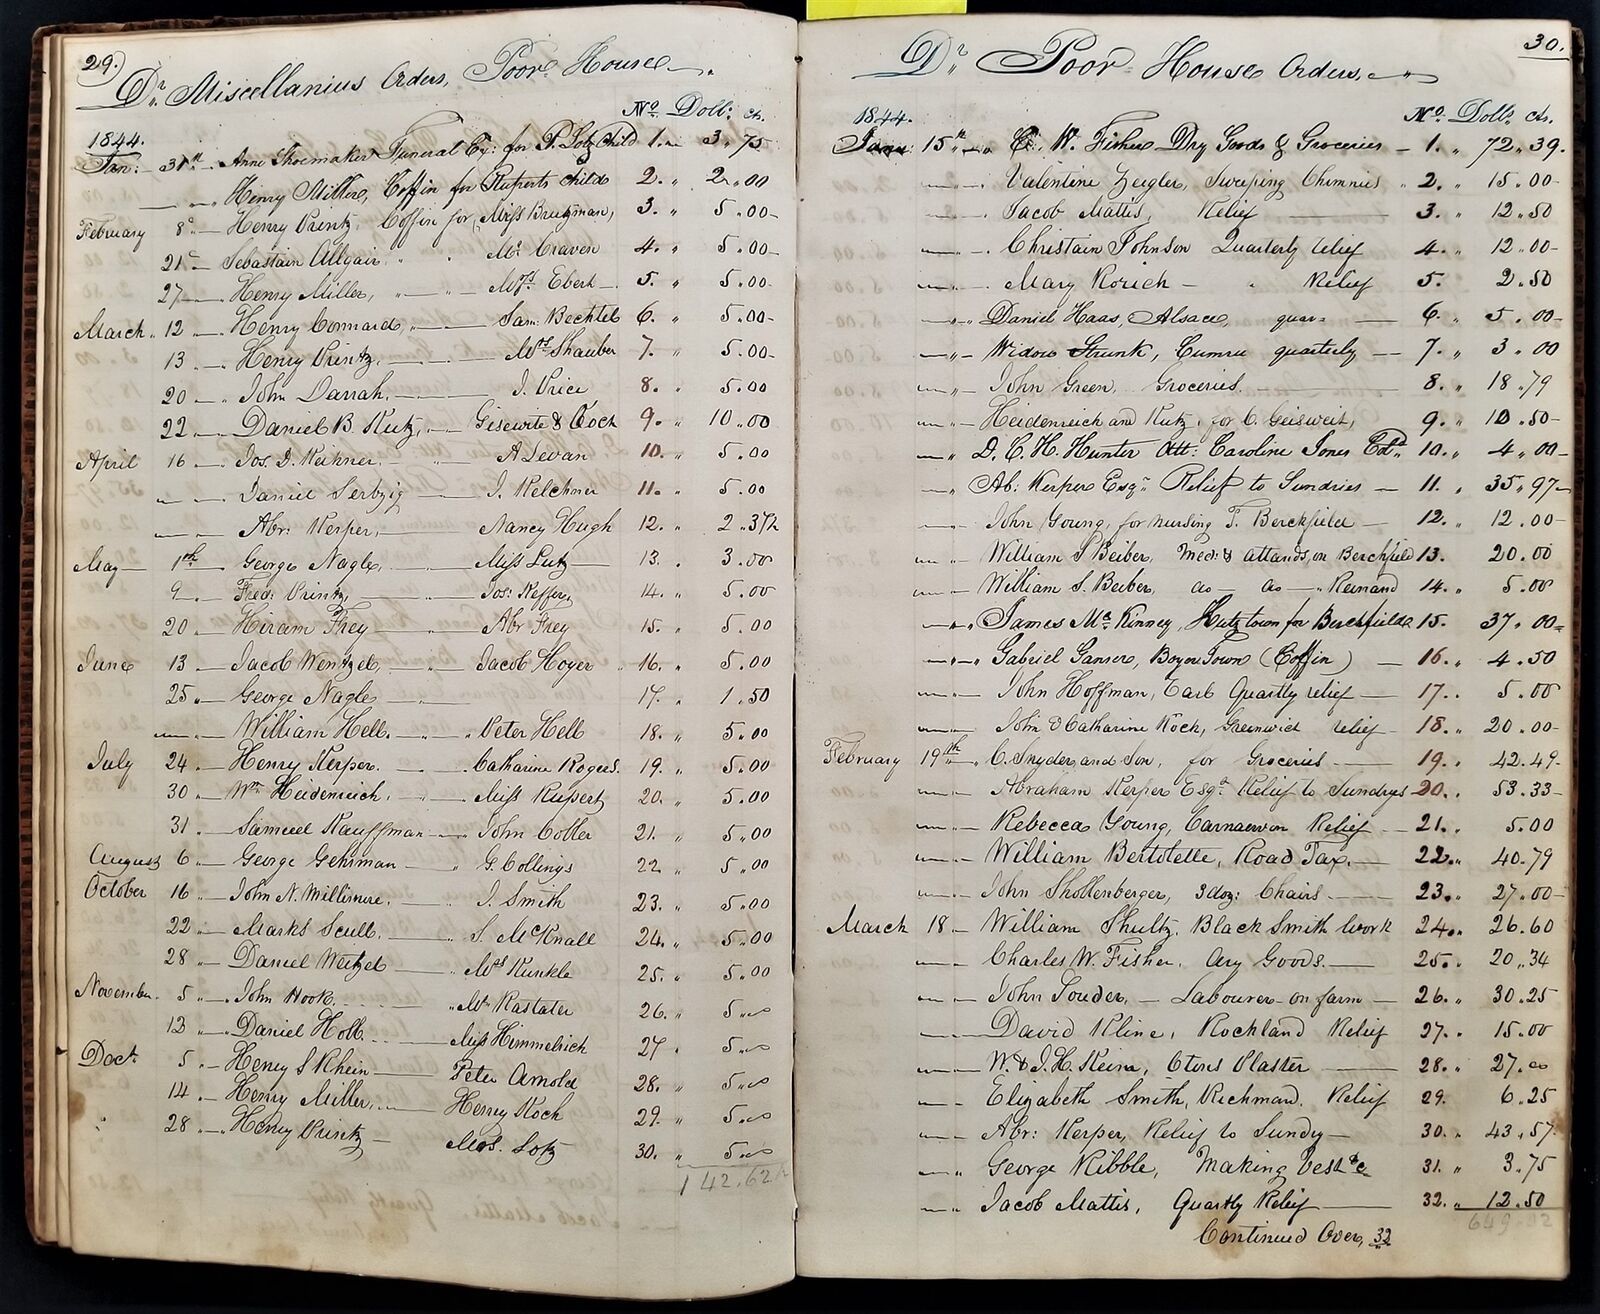 29.
Dr. Miscellanius Orders, Poor House
No. Doll: cts.
1844.
Jan: 31st Ann Shoemaker Funeral Ex: for P. Lotz Child 1. 3.75
Henry Miller, Coffin for Ruperts Child 2. 2.00
February 8th Henry Printz, Coffin for Miss Brutzman, 3. 5.00
21st Sebastain Allgair " " Mr. Craven 4. 5.00
27 Henry Miller, " " Mrs. Ebert 5. 5.00
March 12 Henry Connard, " Sam: Bechtel 6. 5.00
13 Henry Printz, Mrs. Shauber 7. 5.00
20 " John Darrah, I. Price 8. 5.00
22 Daniel B. Kutz, Gisewite & Coch 9. 10.00
April 16 Jos. D. Reihner, A Levan 10. 5.00
" Daniel Sertzig J. Kelchner 11. 5.00
" Abr: Kerper, Nancy Hugh 12. 2.37½
May 1st George Nagle, Miss Lutz 13. 3.00
9 Fred: Printz, Jos: Keffer, 14. 5.00
20 Hiram Frey Abr Frey 15. 5.00
June 13 Jacob Wentzel, Jacob Hoyer 16. 5.00
25 George Nagle 17. 1.50
" William Hell " Peter Hell 18. 5.00
July 24 Henry Kerper. Catharine Rogers. 19. 5.00
30 Wm. Heidenreich. Miss Rupert 20. 5.00
31. Samuel Kauffman John Coller 21. 5.00
August 6 George Gehrman " G. Collings 22 5.00
October 16 John N. Millimire, J. Smith 23. 5.00
22 Marks Scull. S. McKnall 24. 5.00
28 Daniel Weitzel Mrs Kunkle 25. 5.00
November. 5 John Hook. Mr. Rastater 26. 5.00
12 Daniel Holl. Miss Himmelrich 27. 5.00
Dect. 5 Henry S Rhein Peter Arnold 28. 5.00
14 Henry Miller, Henry Koch 29. 5.00
" 28 Henry Printz Mos. Lotz 30. 5.00
142.62½
30.
Dr. Poor House Orders,
1844. No. Dolls cts.
Jann: 15th C. W. Fisher Dry Goods & Groceries 1. 72.39.
Valentine Zeigler, Sweeping Chimnies 2. 15.00
Jacob Mattis, Relief 3. 12.50
Christain Johnson Quarterly relief 4. 12.00
Mary Rorich " Relief 5. 2.50
Daniel Haas, Alsace, quar= 6. 5.00
Widow Strunk, Cumru quarterly 7. 3.00
John Green, Groceries. 8. 18.79
Heidenreich and Kutz, for C. Geisweit, 9. 10.50
D. C. H. Hunter Att: Caroline Jones Ed. 10. 4.00
Ab: Kerper Esqr. Relief to Sundries 11. 35.97
John Young, for nursing T. Berckfield 12. 12.00
William S Beiber, Med: & Attands, on Berchfield 13. 20.00
William S. Beiber, do do Reinand 14. 5.00
James McKinney, Hutztown for Berchfield 15. 37.00
Gabriel Ganser, Boyer Town (Coffin) 16. 4.50
John Hoffman, Earl Quartly relief 17. 5.00
John & Catharine Rock, Greenwich relief 18. 20.00
February 19th C. Snyder, and Son, for Groceries 19. 42.49
Abraham Kerper Esqr. Relief to Sundrys 20. 53.33
Rebecca Young, Carnaervon Relief 21. 5.00
William Bertolette, Road Tax. 22. 40.79
John Shollenberger, 3 doz: Chairs 23. 27.00
March 18 William Shultz, Black Smith work 24. 26.60
Charles W. Fisher, Dry Goods. 25. 20.34
John Souder, Labourer on farm 26. 30.25
David Kline, Rockland Relief 27. 15.00
W. & J. H. Keim, Plaster 28. 27.00
Elizabeth Smith, Richmand. Relief 29. 6.25
Abr: Kerper, Relief to Sundry 30. 43.57
George Kibble, Making Vest &c 31. 3.75
Jacob Mattis, Quartly Relief 32. 12.50
Continued Over, 32